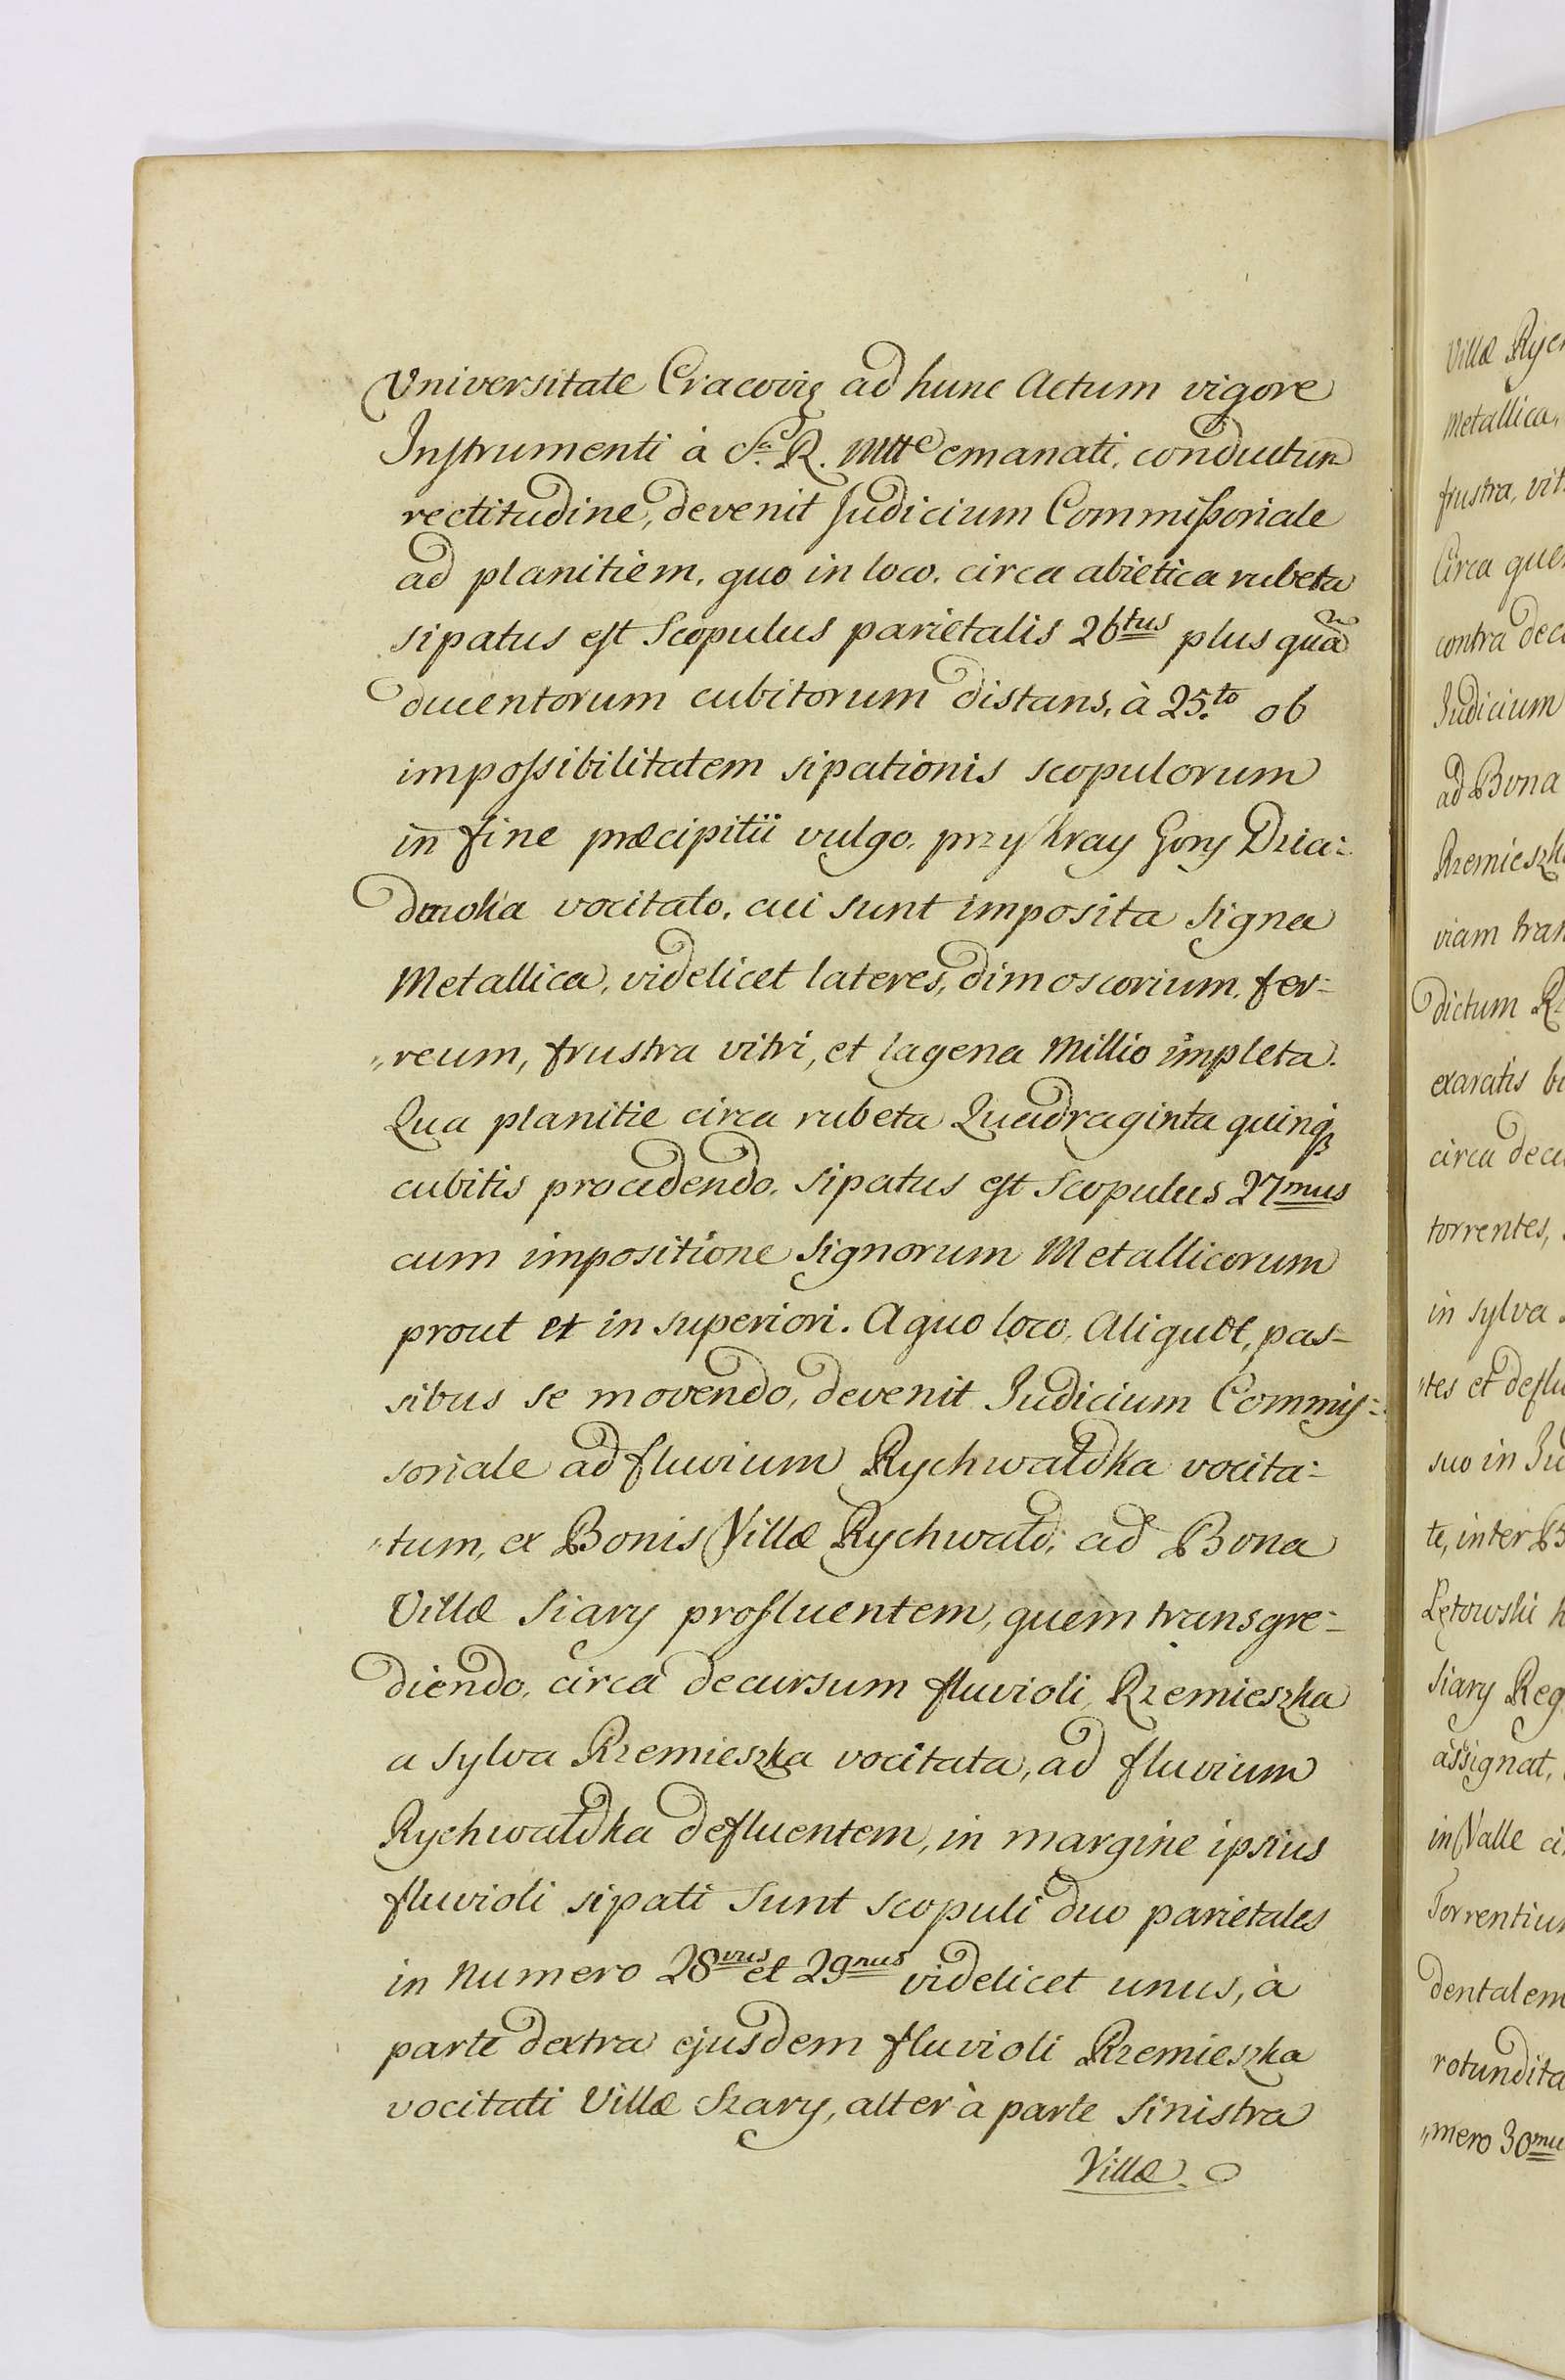 Universitate Cracovię ad hunc Actum vigore
Instrumenti à S.ª R. Mtte emanati, conductum
rectitudine, devenit Judicium Commißoriale
ad planitiem, quo in loco, circa abietica rubeta
sipatus est Scopulus parietalis 26tus plus quã
ducentorum cubitorum distans, à 25.to ob
impossibilitatem sipationis scopulorum
in fine præcipitii vulgo, przykray Gory Dzia=
vocitato, cui sunt imposita Signa
Metallica, videlicet lateres, dimoscorium, fer=
„reum, frustra vitri, et lagena Millio impleta.
Qua planitie circa rubeta Quadraginta quinq3
cubitis procedendo, sipatus est Scopulus 27mus
cum impositione Signorum Metallicorum
prout et in superiori. A quo loco, Aliquot, pas=
sibus se movendo, devenit Judicium Commis=
soriale ad fluvium Rychwałdka vocita=
„tum, ex Bonis Villæ Rychwałd, ad Bona
Villæ Siary profluentem, quem transgre=
diendo, circa decursum fluvioli Rzemieszka
a sylva Rzemieszka vocitata, ad fluvium
Rychwałdka defluentem, in margine ipsius
fluvioli sipati Sunt scopuli duo parietales
in Numero 28vus et 29nus videlicet unus, à
parte dextra ejusdem fluvioli Rzemieszka
vocitati Villæ Szary, alter à parte Sinistra
Villæ
Villæ Rych
Metallica,
frustra, vit
Circa que
contra dec
Judicium
ad Bona
Rzemieszk
viam tran
dictum R
exaratis bi
circa decu
torrentes,
in sylva
„tes et deflu
suo in Ju
te, inter B
Łętowski
Siary Reg
assignat,
in Valle ci
Torrentiu
dentalem
rotundita
„mero 30mu